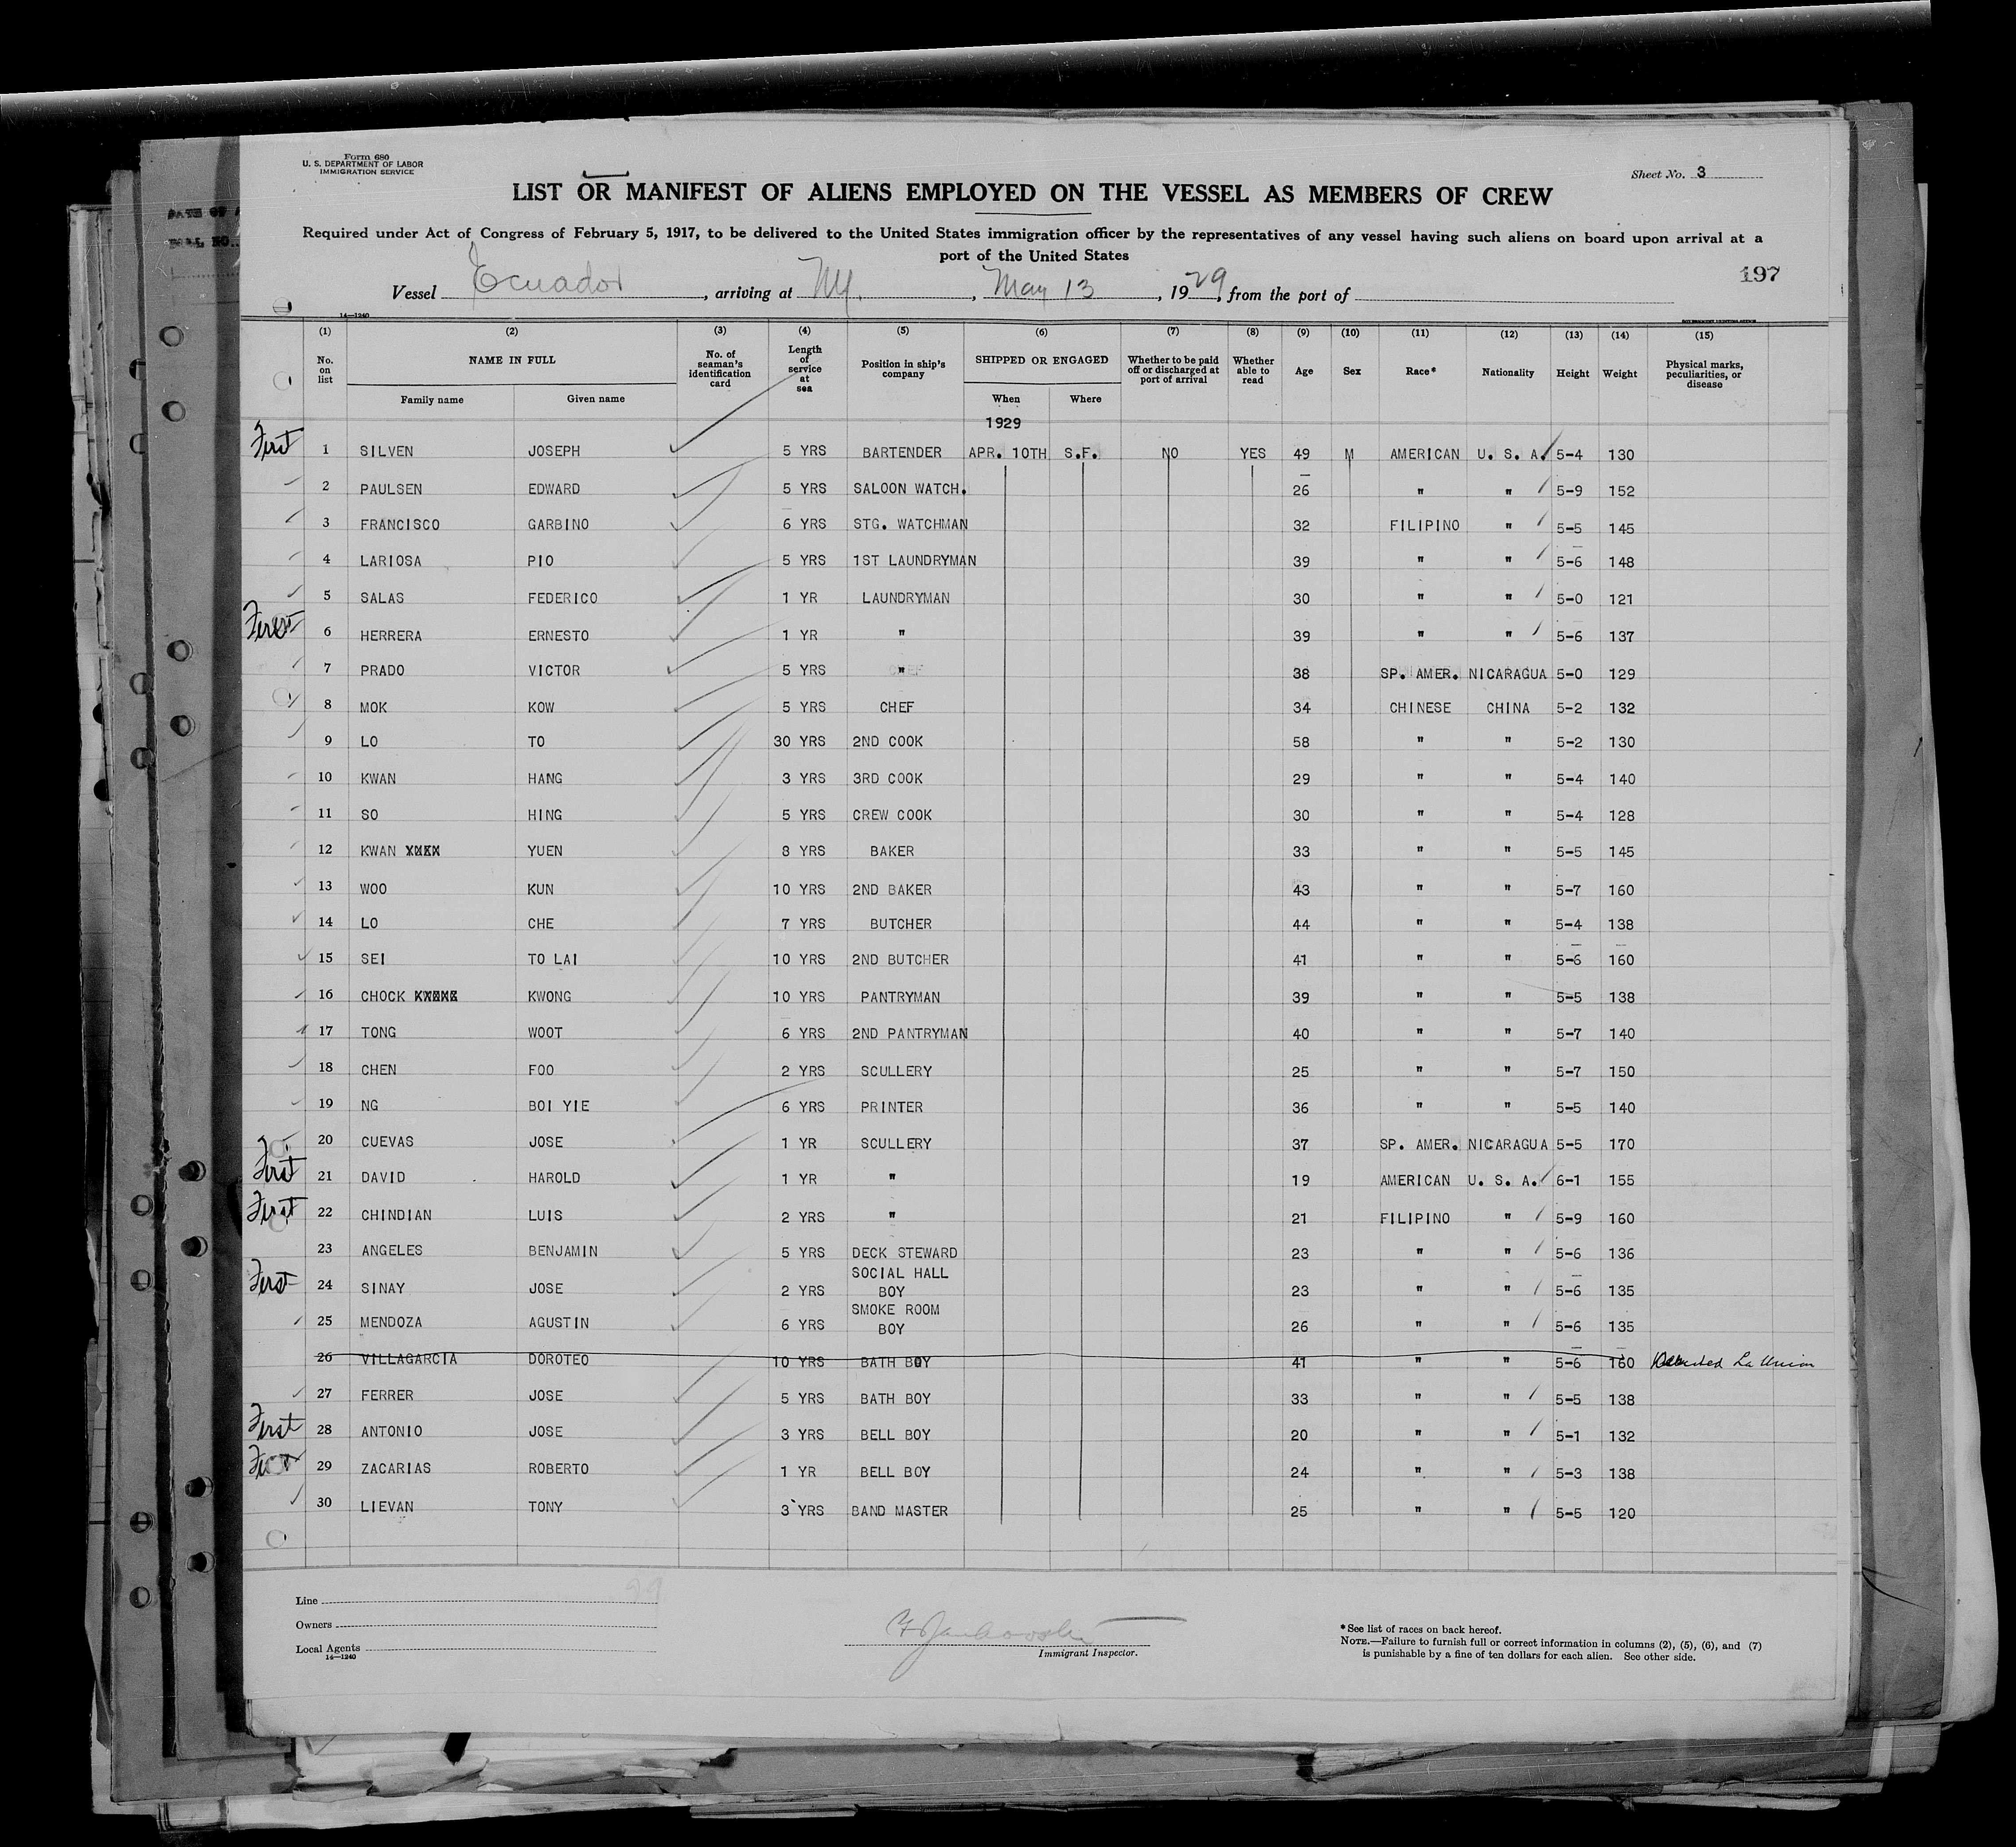 Form 680
U. S. DEPARTMENT OF LABOR
IMMIGRATION SERVICE
Sheet No. 3
LIST OR MANIFEST OF ALIENS EMPLOYED ON THE VESSEL AS MEMBERS OF CREW
Required under Act of Congress of February 5, 1917, to be delivered to the United States immigration officer by the representatives of any vessel having such aliens on board upon arrival at a
port of the United States
197
Vessel Ecuador, arriving at NY., May 13, 1929, from the port of
14—1240
(1) (2) (3) (4) (5) (6) (7) (8) (9) (10) (11) (12) (13) (14) (15)
No. on list NAME IN FULL Family name Given name No. of seaman's identification card Length of service at sea Position in ship's company SHIPPED OR ENGAGED When Where Whether to be paid off or discharged at port of arrival Whether able to read Age Sex Race* Nationality Height Weight Physical marks, peculiarities, or disease
1929
First 1 SILVEN JOSEPH 5 YRS BARTENDER APR. 10TH S.F. NO YES 49 M AMERICAN U. S. A. 5-4 130
2 PAULSEN EDWARD 5 YRS SALOON WATCH. 26 " " 5-9 152
3 FRANCISCO GARBINO 6 YRS STG. WATCHMAN 32 FILIPINO " 5-5 145
4 LARIOSA PIO 5 YRS 1ST LAUNDRYMAN 39 " " 5-6 148
5 SALAS FEDERICO 1 YR LAUNDRYMAN 30 " " 5-0 121
First 6 HERRERA ERNESTO 1 YR " 39 " " 5-6 137
7 PRADO VICTOR 5 YRS " 38 SP. AMER. NICARAGUA 5-0 129
8 MOK KOW 5 YRS CHEF 34 CHINESE CHINA 5-2 132
9 LO TO 30 YRS 2ND COOK 58 " " 5-2 130
10 KWAN HANG 3 YRS 3RD COOK 29 " " 5-4 140
11 SO HING 5 YRS CREW COOK 30 " " 5-4 128
12 KWAN YUEN 8 YRS BAKER 33 " " 5-5 145
13 WOO KUN 10 YRS 2ND BAKER 43 " " 5-7 160
14 LO CHE 7 YRS BUTCHER 44 " " 5-4 138
15 SEI TO LAI 10 YRS 2ND BUTCHER 41 " " 5-6 160
16 CHOCK KWONG 10 YRS PANTRYMAN 39 " " 5-5 138
17 TONG WOOT 6 YRS 2ND PANTRYMAN 40 " " 5-7 140
18 CHEN FOO 2 YRS SCULLERY 25 " " 5-7 150
19 NG BOI YIE 6 YRS PRINTER 36 " " 5-5 140
20 CUEVAS JOSE 1 YR SCULLERY 37 SP. AMER. NICARAGUA 5-5 170
First 21 DAVID HAROLD 1 YR " 19 AMERICAN U. S. A. 6-1 155
First 22 CHINDIAN LUIS 2 YRS " 21 FILIPINO " 5-9 160
23 ANGELES BENJAMIN 5 YRS DECK STEWARD 23 " " 5-6 136
First 24 SINAY JOSE 2 YRS SOCIAL HALL BOY 23 " " 5-6 135
25 MENDOZA AGUSTIN 6 YRS SMOKE ROOM BOY 26 " " 5-6 135
26 VILLAGARCIA DOROTEO 10 YRS BATH BOY 41 " " 5-6 160 La Union
27 FERRER JOSE 5 YRS BATH BOY 33 " " 5-5 138
First 28 ANTONIO JOSE 3 YRS BELL BOY 20 " " 5-1 132
First 29 ZACARIAS ROBERTO 1 YR BELL BOY 24 " " 5-3 138
30 LIEVAN TONY 3 YRS BAND MASTER 25 " " 5-5 120
Line
Owners
Local Agents
14—1240
Immigrant Inspector.
*See list of races on back hereof.
NOTE.—Failure to furnish full or correct information in columns (2), (5), (6), and (7)
is punishable by a fine of ten dollars for each alien. See other side.